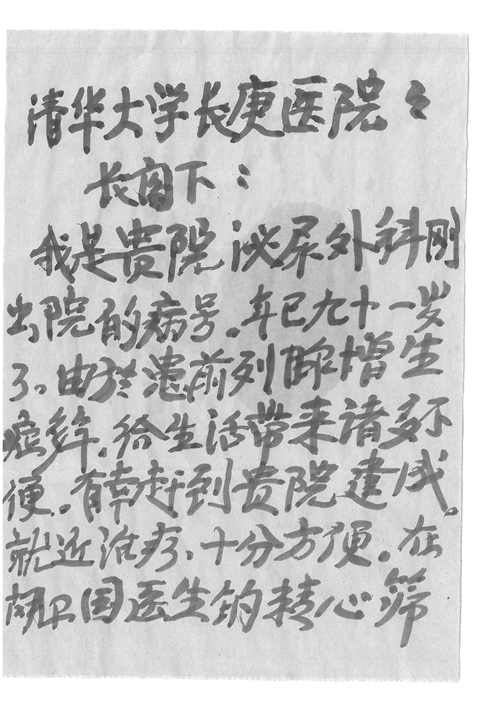 清华大学长庚医院々
长阁下：
我是贵院泌尿外科刚
出院的病号。年已九十一岁
了。由於患前列腺增生
症，给生活带来诸多不
便。有幸赶到贵院建成。
就近治疗、十分方便。在
卫国医生的精心筛